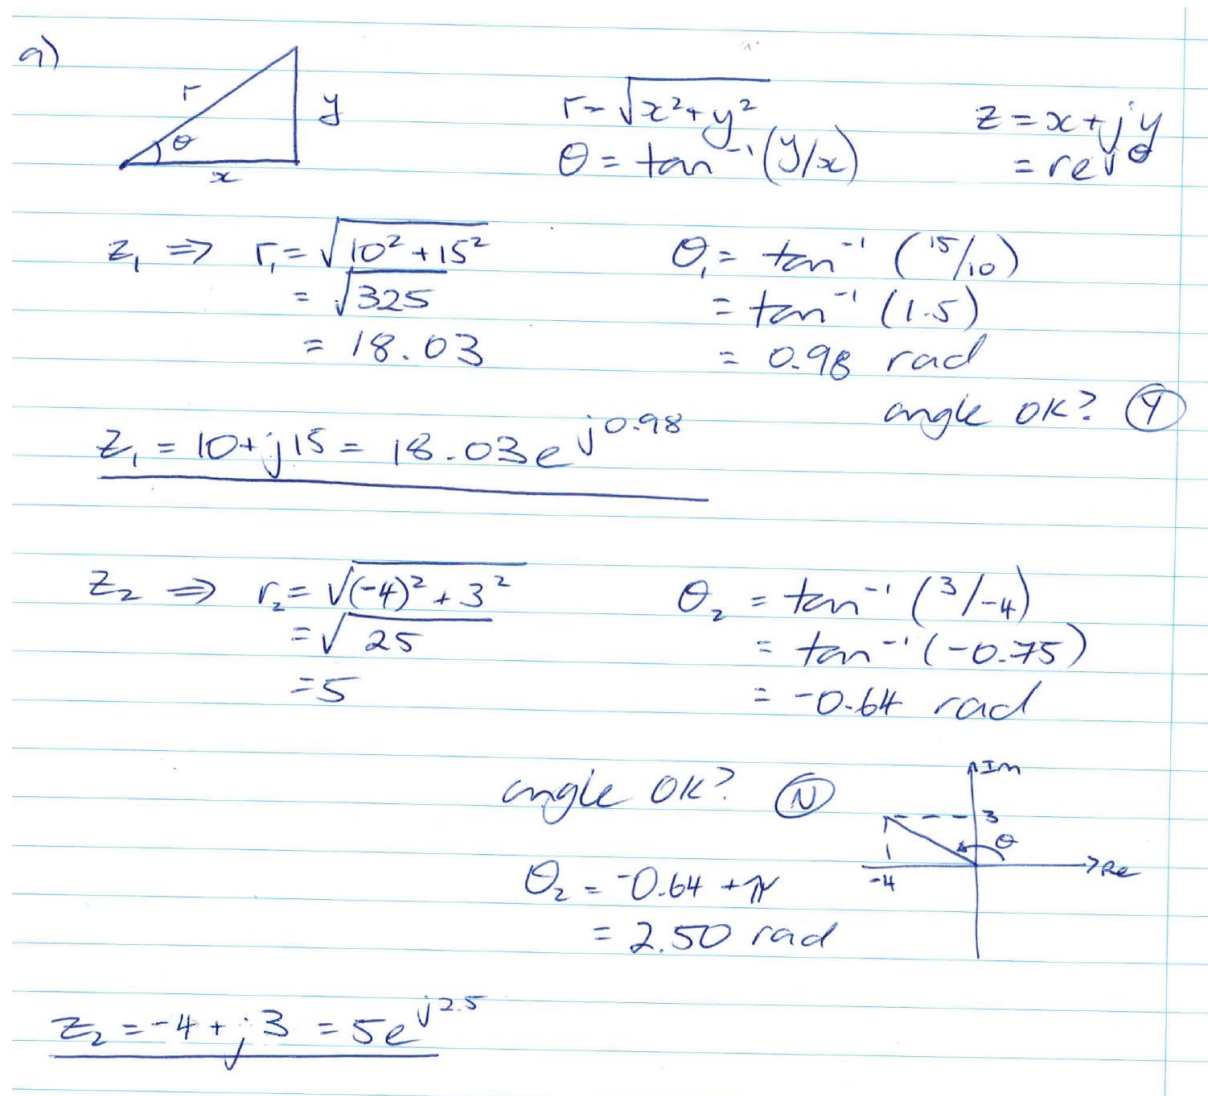 a)
r
θ
y
x
r = √x²+y²
θ = tan⁻¹(y/x)
z = x + jy
= re^jθ
z₁ ⇒ r₁ = √10² + 15²
= √325
= 18.03
θ₁ = tan⁻¹ (15/10)
= tan⁻¹ (1.5)
= 0.98 rad
angle OK? Y
z₁ = 10 + j15 = 18.03e^j0.98
z₂ ⇒ r₂ = √(-4)² + 3²
= √25
= 5
θ₂ = tan⁻¹ (3/-4)
= tan⁻¹ (-0.75)
= -0.64 rad
angle OK? N
Im
3
θ
Re
-4
θ₂ = -0.64 + π
= 2.50 rad
z₂ = -4 + j3 = 5e^j2.5